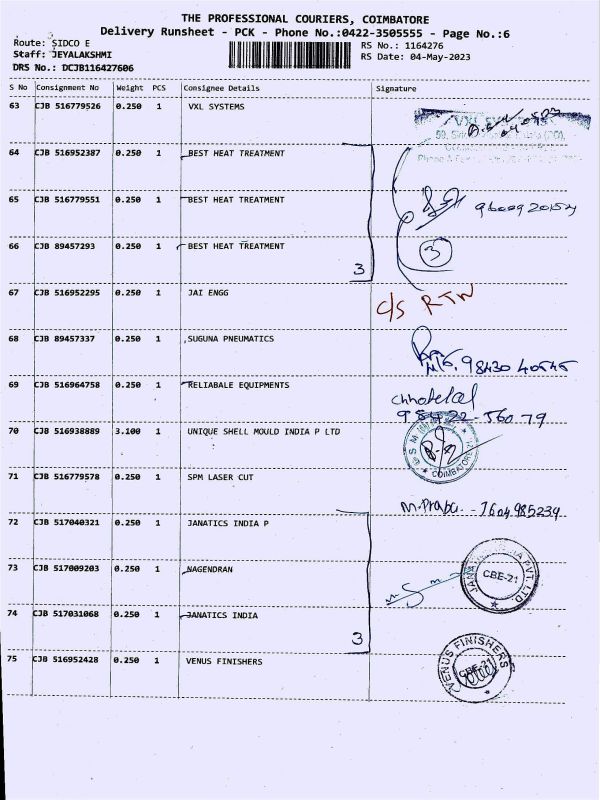 THE PROFESSIONAL COURIERS, COIMBATORE
Delivery Runsheet - PCK - Phone No.:0422-3505555 - Page No.:6
Route: SIDCO E
Staff: JEYALAKSHMI
DRS No.: DCJB116427606
RS No.: 1164276
RS Date: 04-May-2023
S No Consignment No Weight PCS Consignee Details Signature
63 CJB 516779526 0.250 1 VXL SYSTEMS
64 CJB 516952387 0.250 1 BEST HEAT TREATMENT
65 CJB 516779551 0.250 1 BEST HEAT TREATMENT
66 CJB 89457293 0.250 1 BEST HEAT TREATMENT
3 3
67 CJB 516952295 0.250 1 JAI ENGG C/S RTN
68 CJB 89457337 0.250 1 SUGUNA PNEUMATICS
98430 40545
69 CJB 516964758 0.250 1 RELIABALE EQUIPMENTS
98422-56079
70 CJB 516938889 3.100 1 UNIQUE SHELL MOULD INDIA P LTD
COIMBATORE
71 CJB 516779578 0.250 1 SPM LASER CUT
M.Prabu - 7604985239
72 CJB 517040321 0.250 1 JANATICS INDIA P
73 CJB 517009203 0.250 1 NAGENDRAN
CBE-21
74 CJB 517031068 0.250 1 JANATICS INDIA
3
75 CJB 516952428 0.250 1 VENUS FINISHERS
VENUS FINISHERS
CBE-21